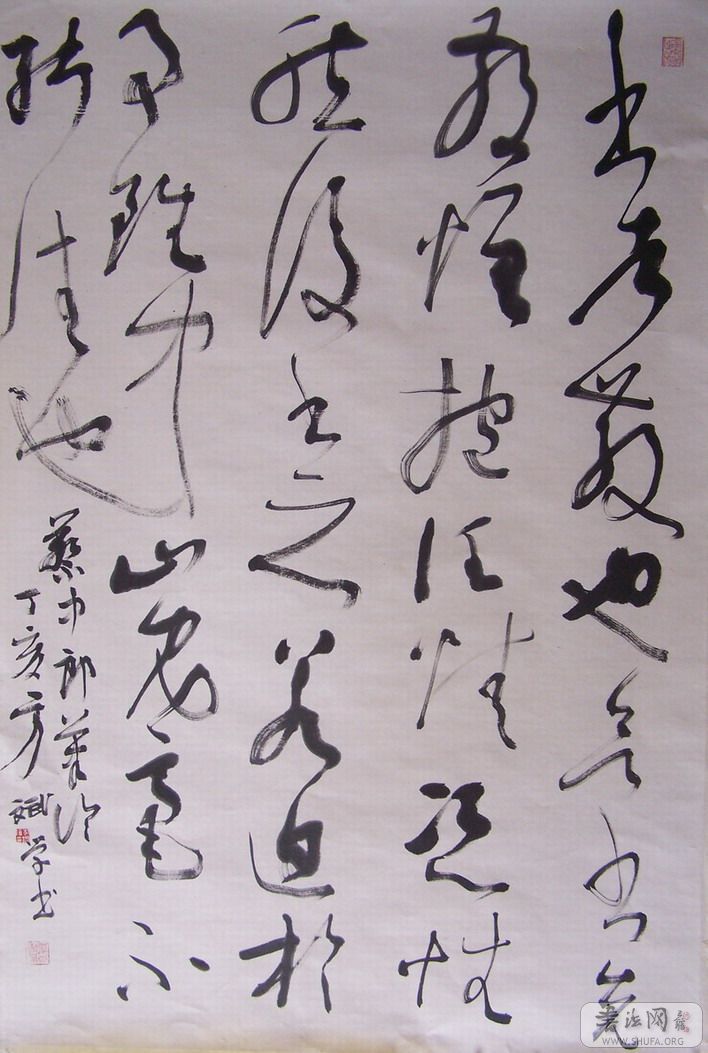 书者散也欲书先
散怀抱任情恣性
然後书之若迫於
事雖中山兔毫不
能佳也
蔡中郎筆论
丁亥方斌学书
書法网
WWW.SHUFA.ORG